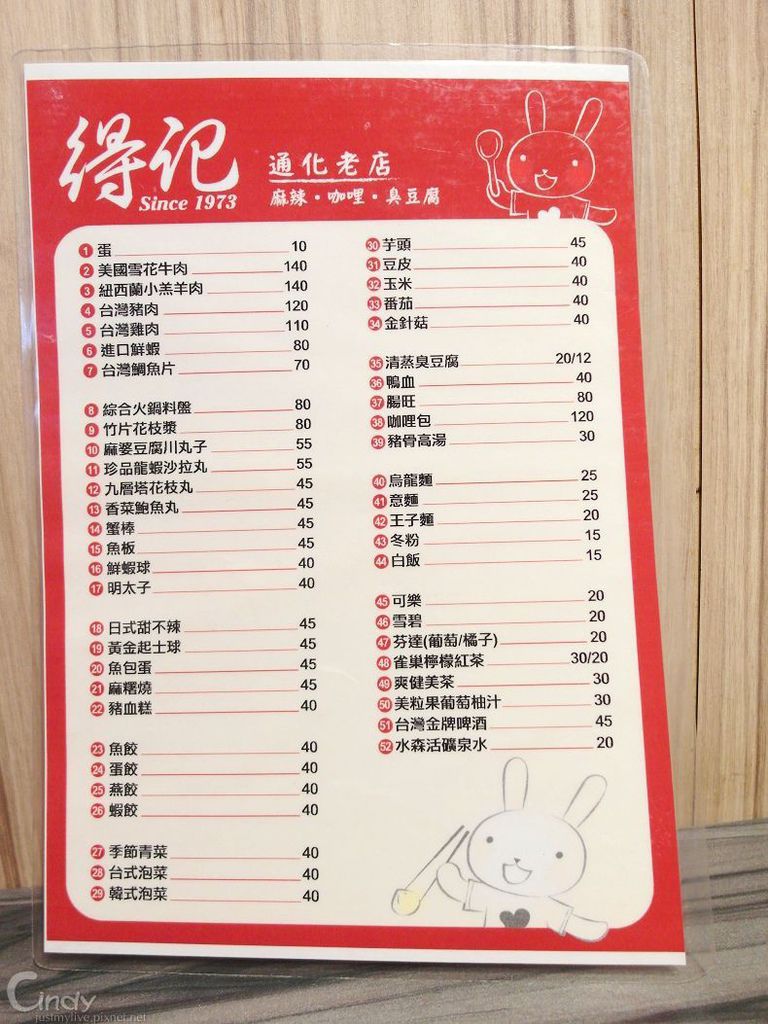 得記
Since 1973
通化老店
麻辣・咖哩・臭豆腐
1 蛋 10
2 美國雪花牛肉 140
3 紐西蘭小羔羊肉 140
4 台灣豬肉 120
5 台灣雞肉 110
6 進口鮮蝦 80
7 台灣鯛魚片 70
8 綜合火鍋料盤 80
9 竹片花枝漿 80
10 麻婆豆腐川丸子 55
11 珍品龍蝦沙拉丸 55
12 九層塔花枝丸 45
13 香菜鮑魚丸 45
14 蟹棒 45
15 魚板 45
16 鮮蝦球 40
17 明太子 40
18 日式甜不辣 45
19 黃金起士球 45
20 魚包蛋 45
21 麻糬燒 45
22 豬血糕 40
23 魚餃 40
24 蛋餃 40
25 燕餃 40
26 蝦餃 40
27 季節青菜 40
28 台式泡菜 40
29 韓式泡菜 40
30 芋頭 45
31 豆皮 40
32 玉米 40
33 番茄 40
34 金針菇 40
35 清蒸臭豆腐 20/12
36 鴨血 40
37 腸旺 80
38 咖哩包 120
39 豬骨高湯 30
40 烏龍麵 25
41 意麵 25
42 王子麵 20
43 冬粉 15
44 白飯 15
45 可樂 20
46 雪碧 20
47 芬達(葡萄/橘子) 20
48 雀巢檸檬紅茶 30/20
49 爽健美茶 30
50 美粒果葡萄柚汁 30
51 台灣金牌啤酒 45
52 水森活礦泉水 20
Cindy
justmylive.pixnet.net